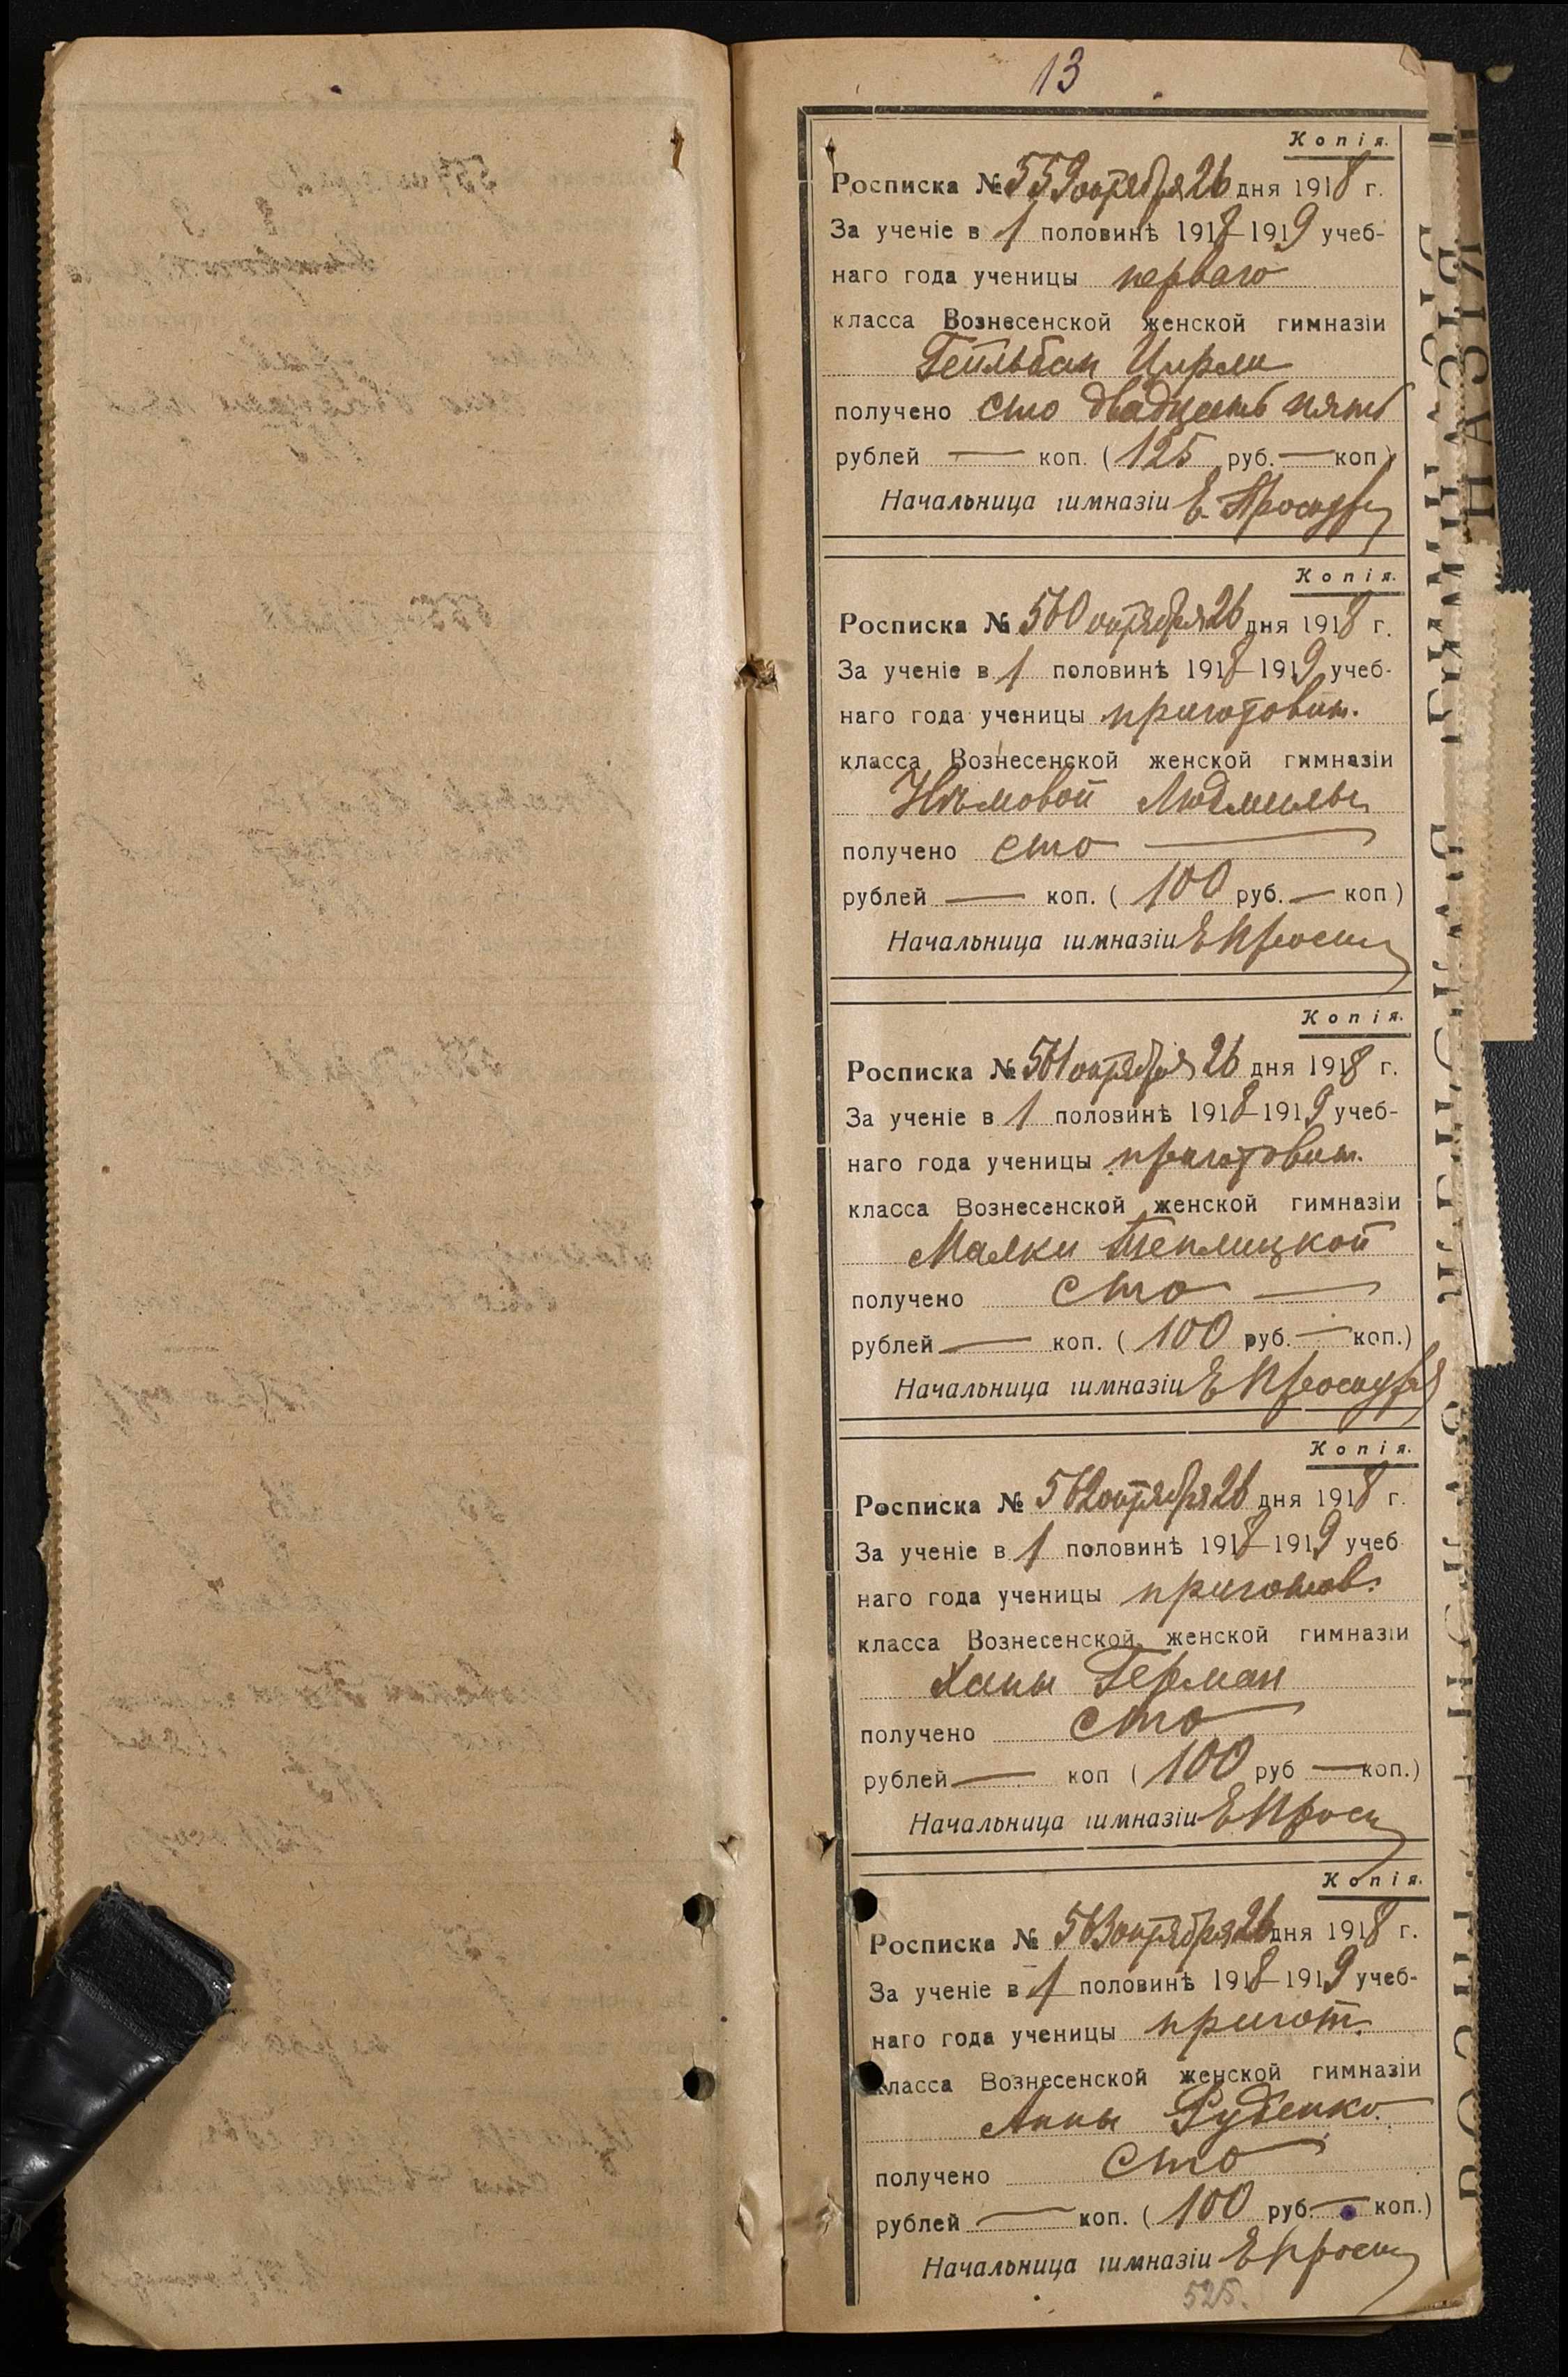 13
Копія.
Росписка № 559 октября 26 дня 1918 г.
За ученіе в 1 половинѣ 1918-1919 учеб-
наго года ученицы перваго
класса Вознесенской женской гимназіи
Гейльбан Цирли
получено сто двадцать пять
рублей — коп. (125 руб. — коп)
Начальница гимназіи Е. Проскур
Копія.
Росписка № 560 октября 26 дня 1918 г.
За ученіе в 1 половинѣ 1918-1919 учеб-
наго года ученицы приготовит.
класса Вознесенской женской гимназіи
Наумовой Людмилы
получено сто —
рублей — коп. (100 руб. — коп)
Начальница гимназіи
Копія.
Росписка № 561 октября 26 дня 1918 г.
За ученіе в 1 половинѣ 1918-1919 учеб-
наго года ученицы приготовит.
класса Вознесенской женской гимназіи
Малки Теплицкой
получено сто —
рублей — коп. (100 руб. — коп.)
Начальница гимназіи
Копія.
Росписка № 562 октября 26 дня 1918 г.
За ученіе в 1 половинѣ 1918-1919 учеб
наго года ученицы приготов.
класса Вознесенской женской гимназіи
Ханы Герман
получено сто
рублей — коп (100 руб — коп.)
Начальница гимназіи
Копія.
Росписка № 563 октября 26 дня 1918 г.
За ученіе в 1 половинѣ 1918-1919 учеб-
наго года ученицы пригот.
класса Вознесенской женской гимназіи
Анны Руденко.
получено сто
рублей — коп. (100 руб. — коп.)
Начальница гимназіи
525.